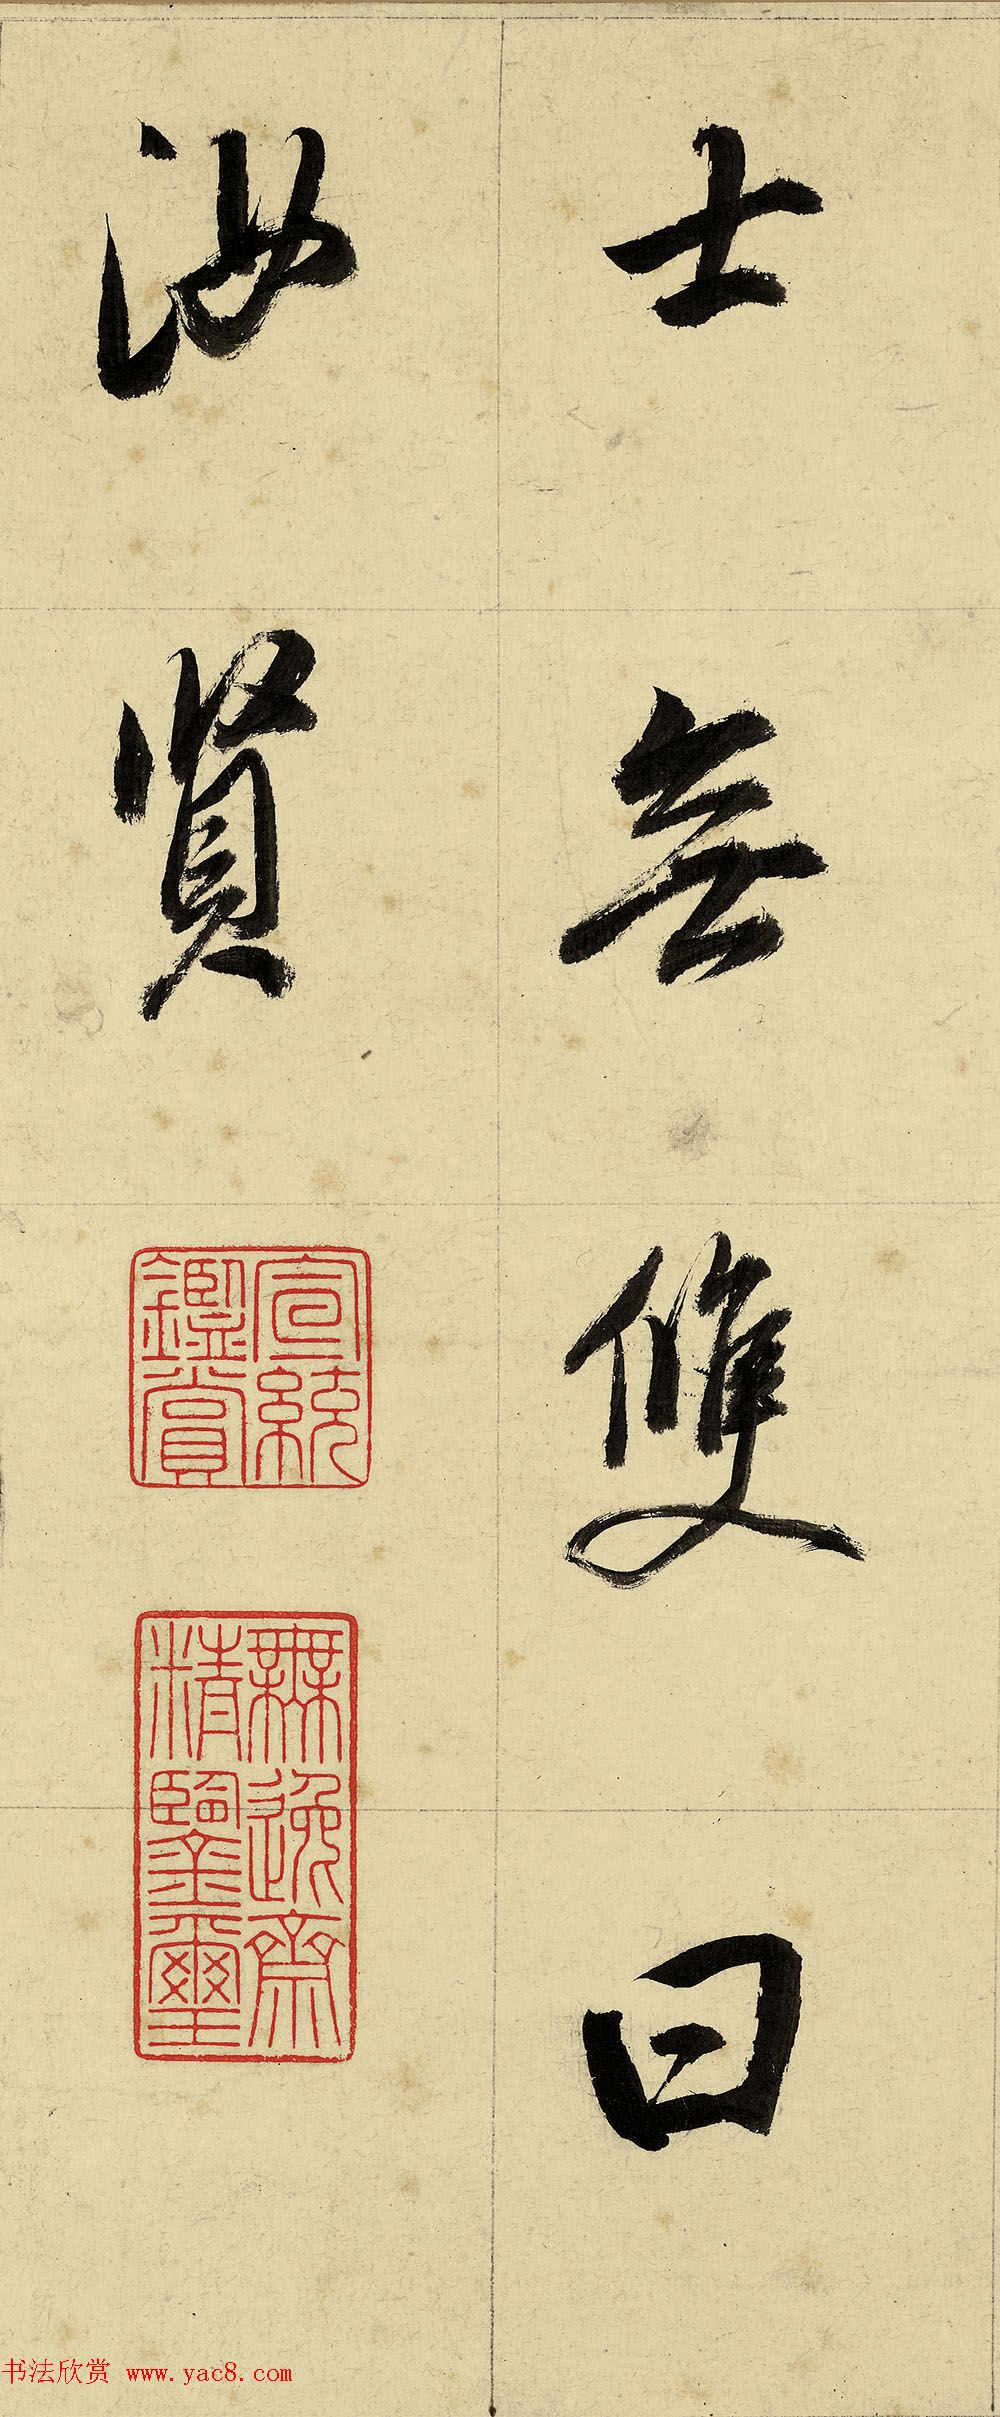 士無雙曰
汝賢
宣統
鑑賞
無逸齋
精鑒璽
书法欣赏 www.yac8.com